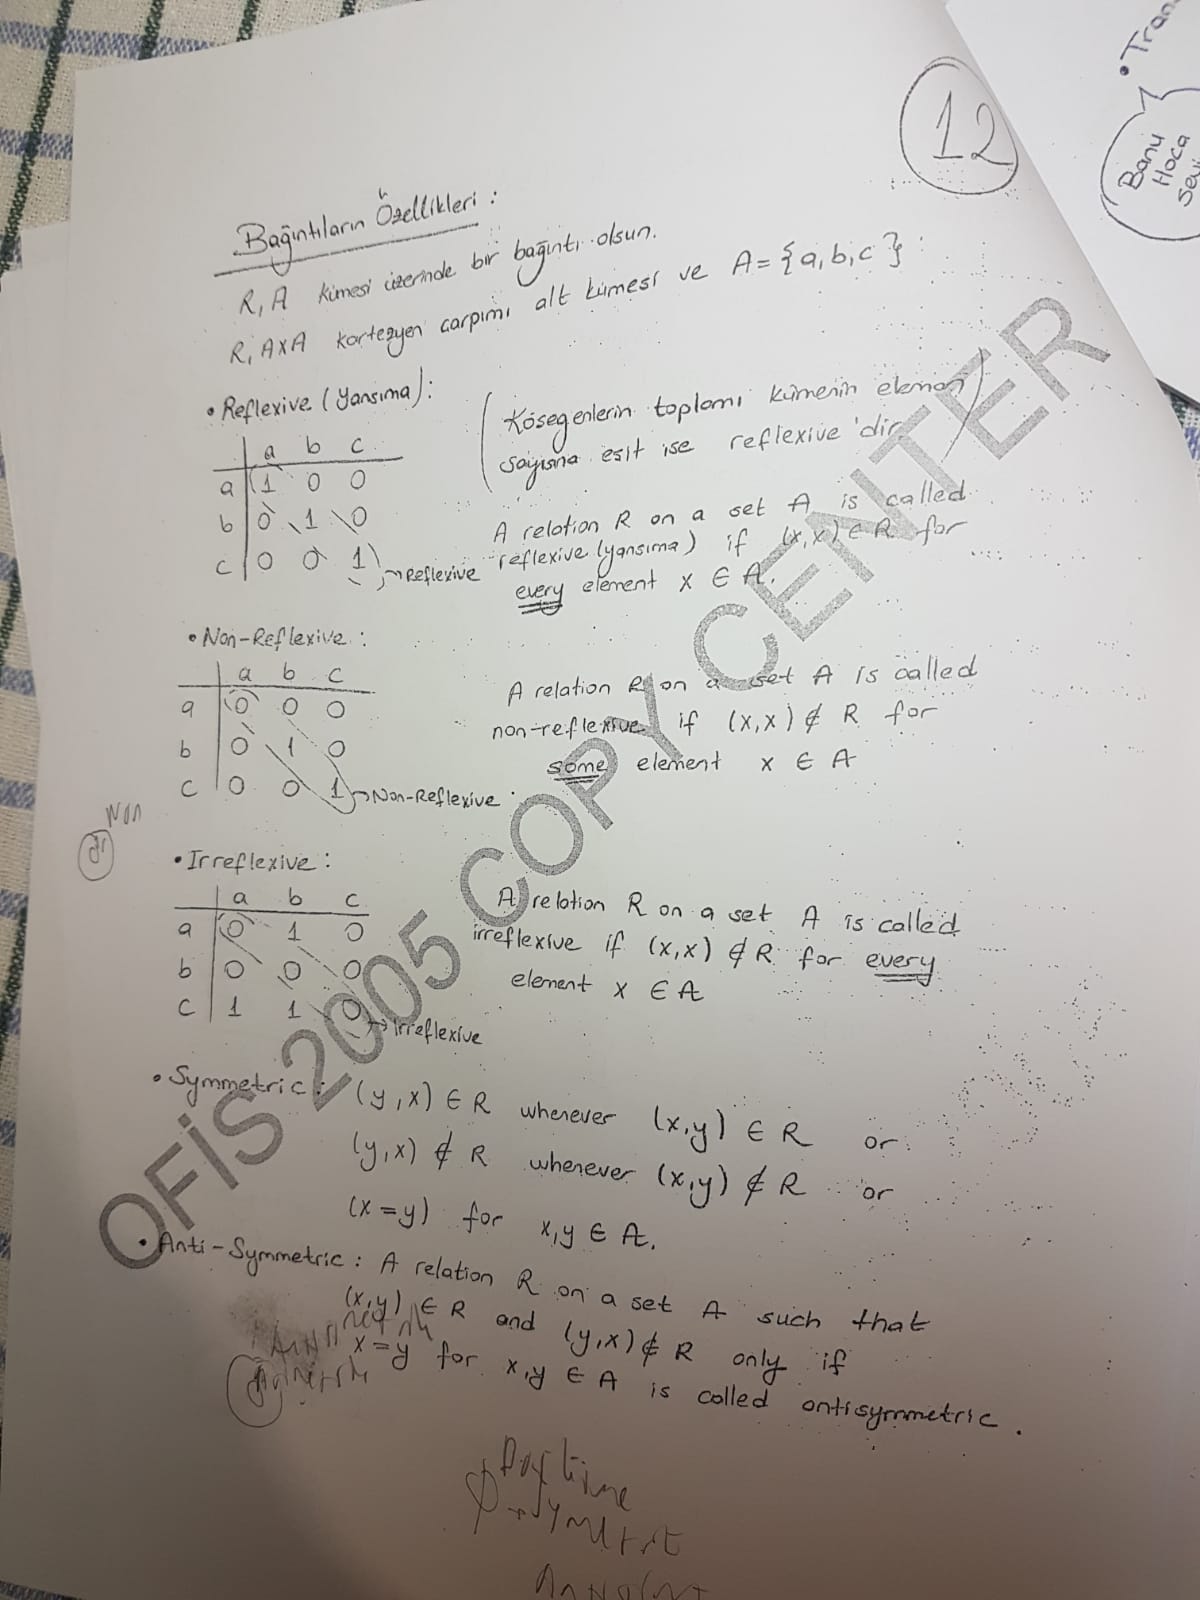 12
• Tran
Banu
Hoca
Bağıntıların Özellikleri :
R, A kümesi üzerinde bir bağıntı olsun.
R, AXA kartezyen çarpımı alt kümesi ve A = {a, b, c} :
• Reflexive (Yansıma) :
(Köşegenlerin toplamı kümenin eleman
sayısına eşit ise reflexive 'dir)
a b c
a 1 0 0
b 0 1 0
c 0 0 1 → Reflexive
A relation R on a set A is called
reflexive (yansıma) if (x,x) ∈ R for
every element x ∈ A.
• Non-Reflexive :
a b c
a 0 0 0
b 0 1 0
c 0 0 1 → Non-Reflexive
A relation R on a set A is called
non-reflexive if (x,x) ∉ R for
some element x ∈ A
Non
• Irreflexive :
a b c
a 0 1 0
b 0 0 0
c 1 1 0 → irreflexive
A relation R on a set A is called
irreflexive if (x,x) ∉ R for every
element x ∈ A
• Symmetric : (y,x) ∈ R whenever (x,y) ∈ R or
(y,x) ∉ R whenever (x,y) ∉ R or
(x=y) for x,y ∈ A.
• Anti-Symmetric : A relation R on a set A such that
(x,y) ∈ R and (y,x) ∉ R only if
x=y for x,y ∈ A is called antisymmetric.
OFİS 2005 COPY CENTER